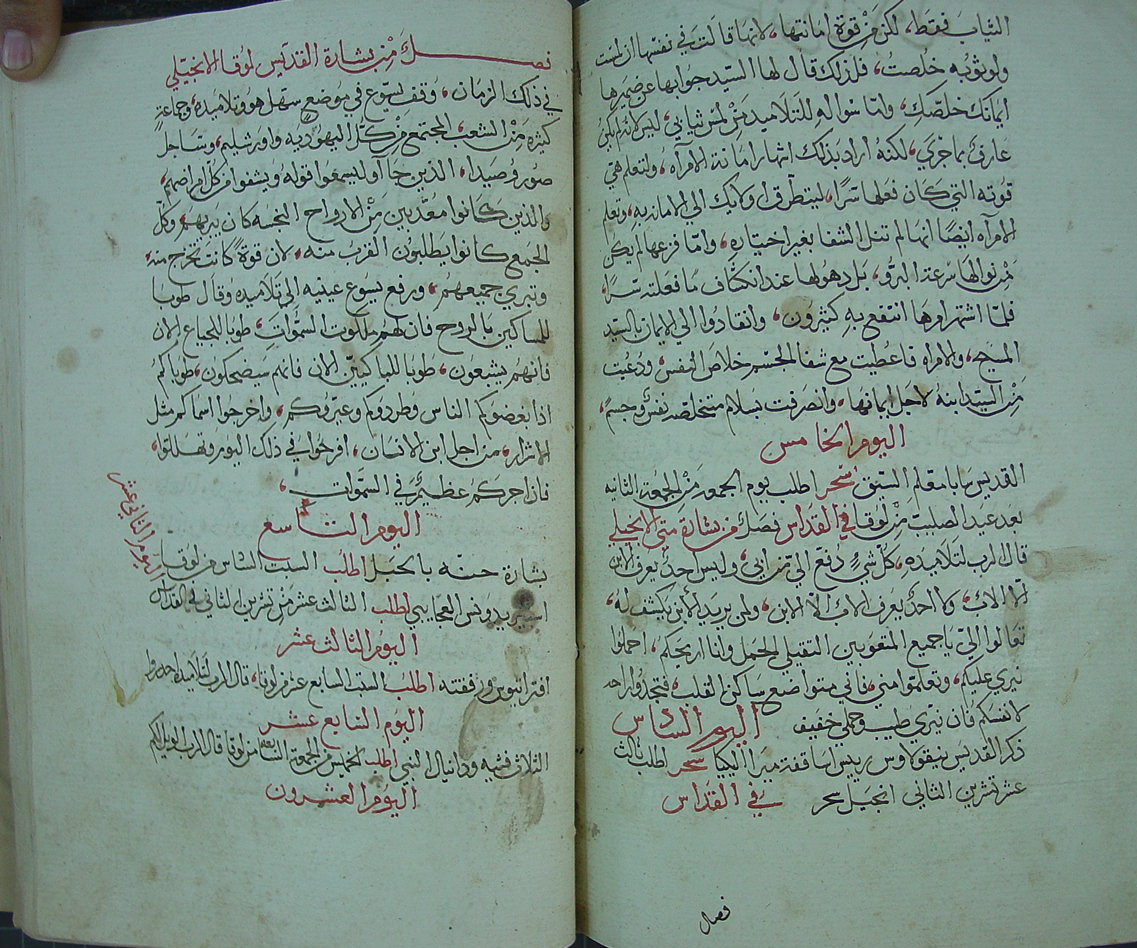 الثياب فقط، لكن من قوة امانتها، لانها قالت في نفسها ان لمست
ولو ثوبه خلصت، فلذلك قال لها السيد جوابها عن ضميرها
ايمانك خلصك، وانما سواله للتلاميد من لمس ثيابي، ليس لانه لم يكن
عارف بما جري، لكنه اراد بذلك اشهار امانة الامراه، ولتعلم هي
قوته التي كان فعلها سرا، ليتطرق اولايك الي الامانه به، وتعلم
الامراه ايضا انها لم تنل الشفا بغير اختياره، واما فزعها لم يكن
من نوالها سرعة البرو، بل دهولها عند انكشاف ما فعلته سرا،
فلما اشتهر امرها انتفع به كثيرون، وانقادوا الي الايمان بالسيد
المسيح، والامراه فاعطيت مع شفا الجسم خلاص النفس، ودعيت
من السيد ابنه لاجل ايمانها، وانصرفت بسلام متخلصه نفس وجسم،
اليوم الخامس
القديس سابا مقلم السيق سحر اطلب يوم الجمعه من الجمعة الثانيه
بعد عيد الصليب من لوقا في القداس فصل من بشارة متي الانجيلي
قال الرب لتلاميده، كل شي دفع الي من ابي، وليس احد يعرف الابن
الا الاب، ولا احد يعرف الاب الا الابن، ولمن يريد الابن يكشف له،
تعالوا الي يا جميع المتعوبين الثقيلي الحمل وانا اريحكم، احملوا
نيري عليكم، وتعلموا مني، فاني متواضع ساكن القلب، فتجدوا راحه
لانفسكم فان نيري طيب وحملي خفيف اليوم السادس
ذكر القديس نيقولاوس رييس اساقفة ميرا الليكيا سحر اطلب ثالث
عشر تشرين الثاني انجيل سحر في القداس
فصل
فصل من بشارة القديس لوقا الانجيلي
في ذلك الزمان، وقف يسوع في موضع سهل هو وتلاميده، وجماعة
كثيره من الشعب المجتمع من كل اليهوديه واورشليم، وساحل
صور وصيدا، الذين جاآوا ليسمعوا قوله ويشفوا من كل امراضهم،
والذين كانوا معذبين من الارواح النجسه كان يبريهم، وكل
الجمع كانوا يطلبون القرب منه، لان قوة كانت تخرج منه
وتبري جميعهم، ورفع يسوع عينيه الي تلاميده وقال طوبا
للمساكين بالروح فان لهم ملكوت السموات، طوبا للجياع الان
فانهم يشبعون، طوبا للباكيين الان فانهم سيضحكون، طوباكم
اذا بغضوكم الناس وطردوكم وعيروكم، واخرجوا اسماكم مثل
الاشرار، من اجل ابن الانسان، افرحوا في ذلك اليوم وتهللوا،
فان اجركم عظيم في السموات،
اليوم التاسع
بشارة حنه بالحبل اطلب السبت السادس من لوقا
اليوم الثاني عشر
اسبيريدونس العجايبي اطلب الثالث عشر من تشرين الثاني في القداس
اليوم الثالث عشر
ورفقته اطلب السبت السابع عشر من لوقا، قال الرب لتلاميده احدروا
اليوم السابع عشر
الثلاث فتيه ودانيال النبي اطلب الخميس من الجمعة التاسعه من لوقا قال الرب الويل لكم
اليوم العشرون